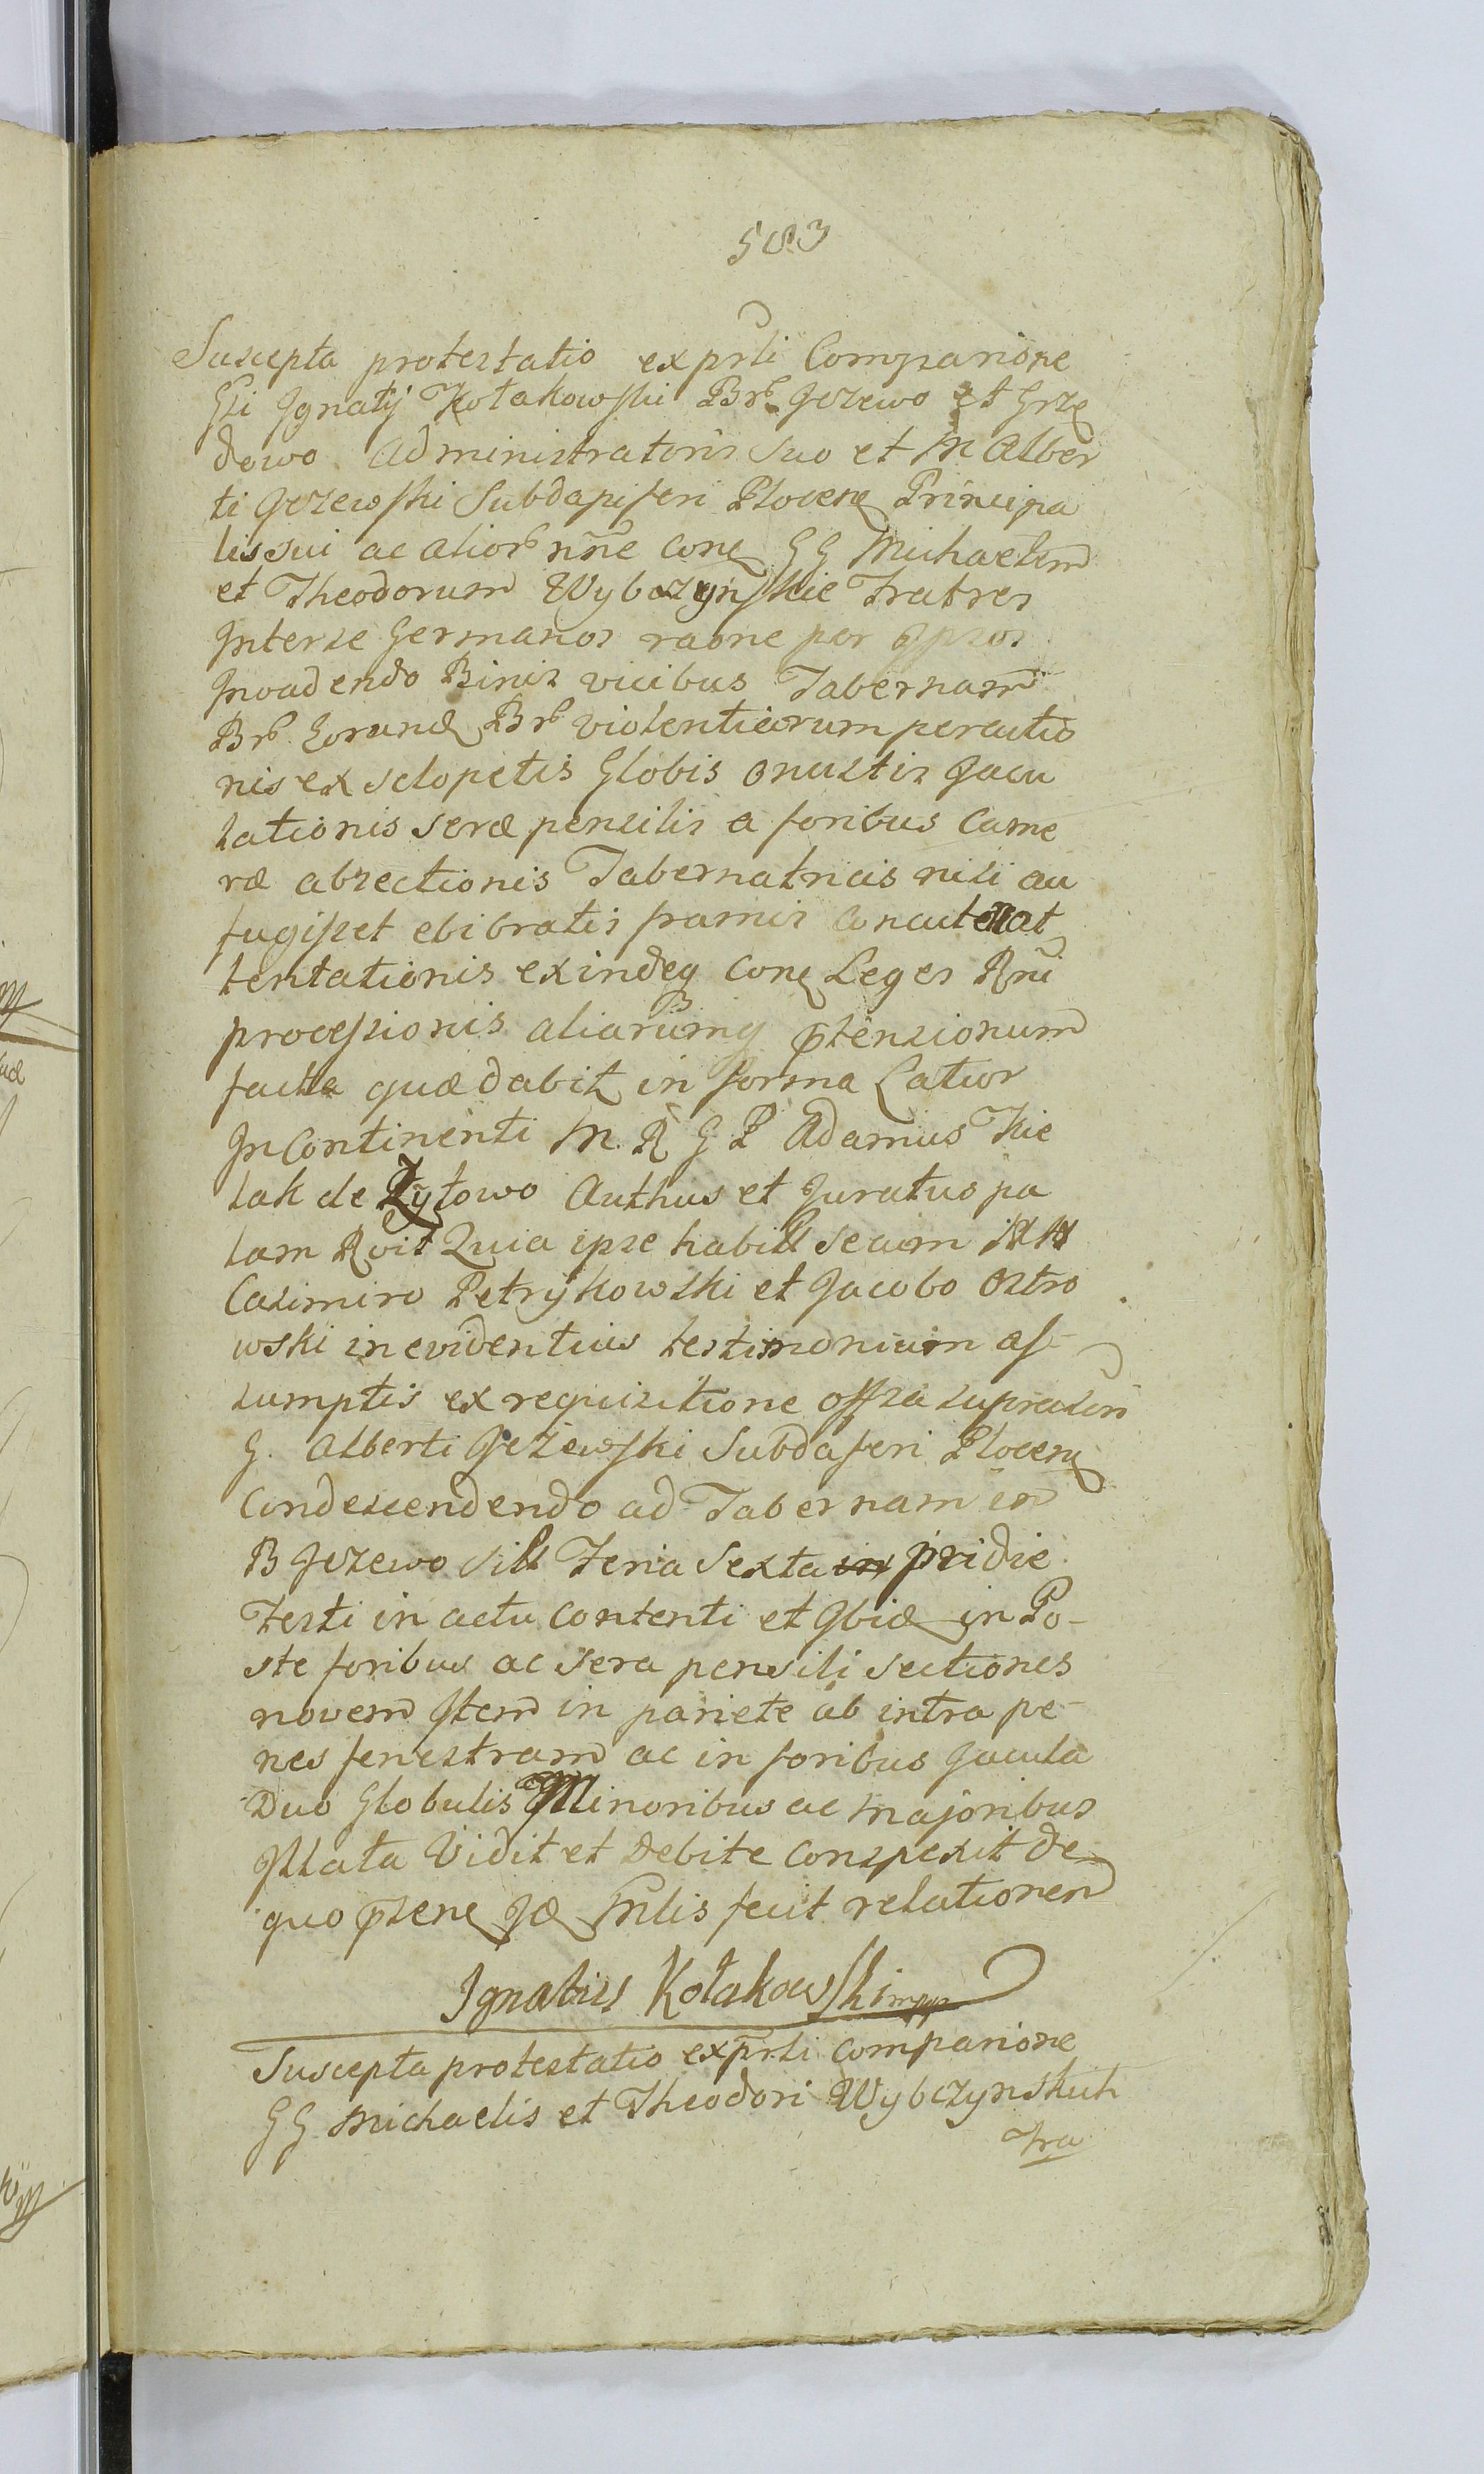 583
Suscepta protestatio ex prli Comparione
Gsi Ignatij Kołakowski Brb Jezewo et Grzę
dowo Administratoris suo et M Alber
ti Jezewski Subdapiferi Plocenę Principa
lis sui ac alior nne conę GG Michaelem
et Theodorum Wybczynskie Fratres
Interse Germanos raone per Ipsos
Invadendo Binis vicibus Tabernam
Brb Eorundę Brb violentiarum percutio
nis ex sclopetis Globis onustis Jacu
lationis seræ pensilis a foribus Came
ræ absectionis Tabernatricis nisi au
fugisset ebibratis frameis concutere at
tentationis exindeq conę Leges Rni
processionis aliarumq ptensionum
facta quæ dabit in forma Latior
In Continenti M. R G P Adamus Kie
lak de Zytowo Authus et Juratus pa
lam Rvit Quia ipse habitis secum
Casimiro Petrykowski et Jacobo Ostro
wski in evidentius testimonium as-
sumptis ex requisitione offsa suprascri
G. Alberti Jeżewski Subdaferi Plocenę
Condescendendo ad Tabernam in
B Jezewo sitt Feria Sexta in pridie
Festi in actu contenti et Ibidę in Po-
ste foribus ac sera pensili sectiones
novem Item in pariete ab intra pe-
nes fenestram ac in foribus Jacula
Duo Globulis Minoribus ac majoribus
Illata Vidit et Debite conspexit de
quo psenę Idę Mnlis fecit relationem
Ignatius Kołakowski mpp
Suscepta protestatio ex prli comparione
GG Michaelis et Theodori Wybczynskich
Fra